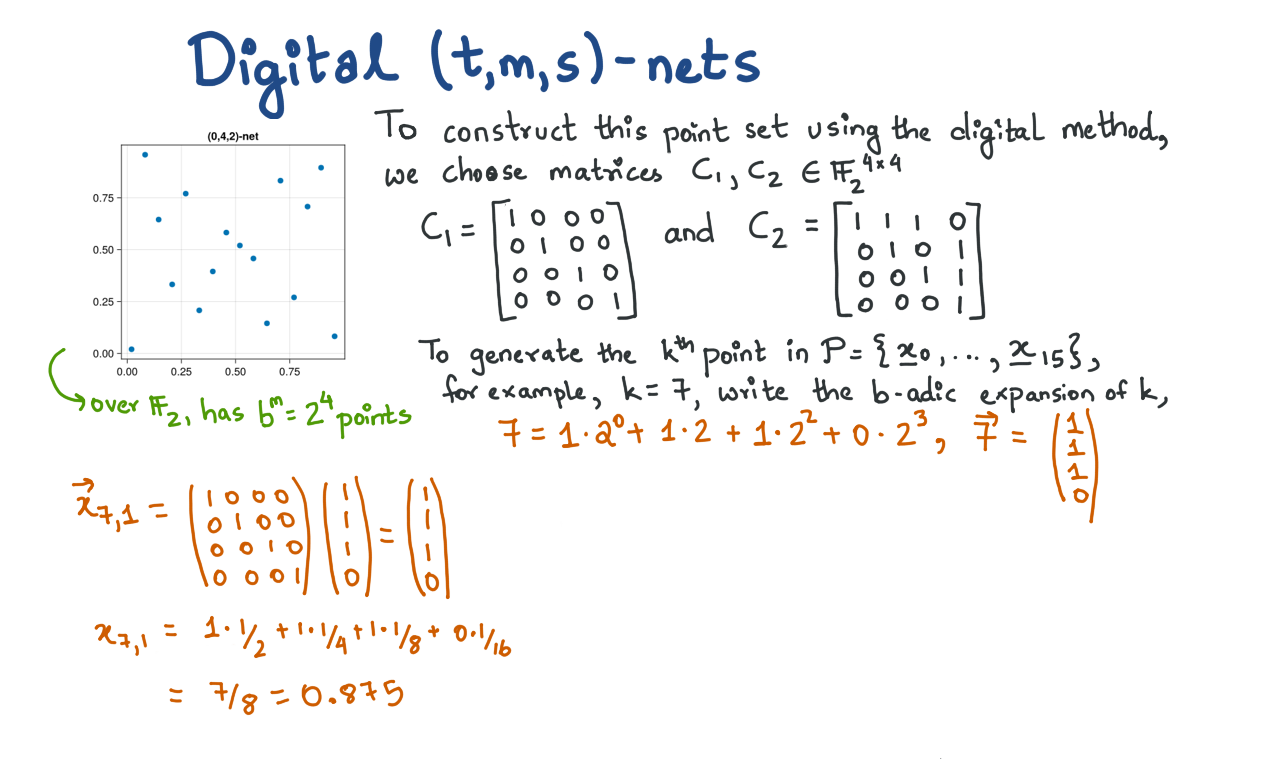 Digital (t,m,s)-nets
(0,4,2)-net
0.75
0.50
0.25
0.00
0.00 0.25 0.50 0.75
To construct this point set using the digital method,
we choose matrices C₁, C₂ ∈ 𝔽₂^{4×4}
C₁ = [1 0 0 0; 0 1 0 0; 0 0 1 0; 0 0 0 1] and C₂ = [1 1 1 0; 0 1 0 1; 0 0 1 1; 0 0 0 1]
To generate the kᵗʰ point in P = {x₀, ..., x₁₅},
for example, k = 7, write the b-adic expansion of k,
over 𝔽₂, has bᵐ = 2⁴ points
7 = 1·2⁰ + 1·2 + 1·2² + 0·2³, 7⃗ = (1 1 1 0)
x⃗₇,₁ = (1 0 0 0; 0 1 0 0; 0 0 1 0; 0 0 0 1) (1 1 1 0) = (1 1 1 0)
x₇,₁ = 1·1/2 + 1·1/4 + 1·1/8 + 0·1/16
= 7/8 = 0.875